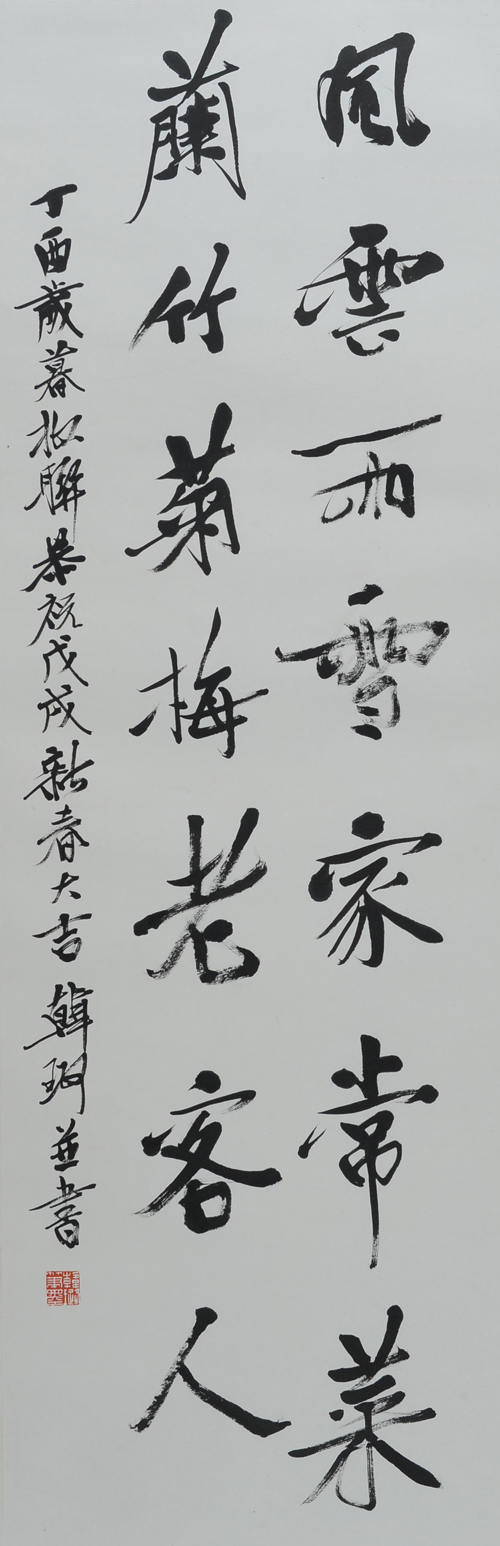 風雲雨雪家常菜
蘭竹菊梅老客人
丁酉歲暮拟聯恭祝戊戌新春大吉 韓珂並書